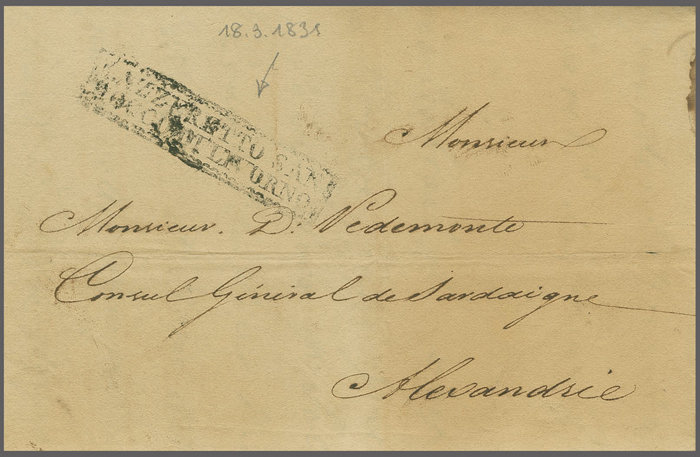 18.3.1831
LAZZERETTO SAN
ROCCO DI LIVORNO
Monsieur
Monsieur. P. Pedemonte
Consul Général de Sardaigne
Alexandrie